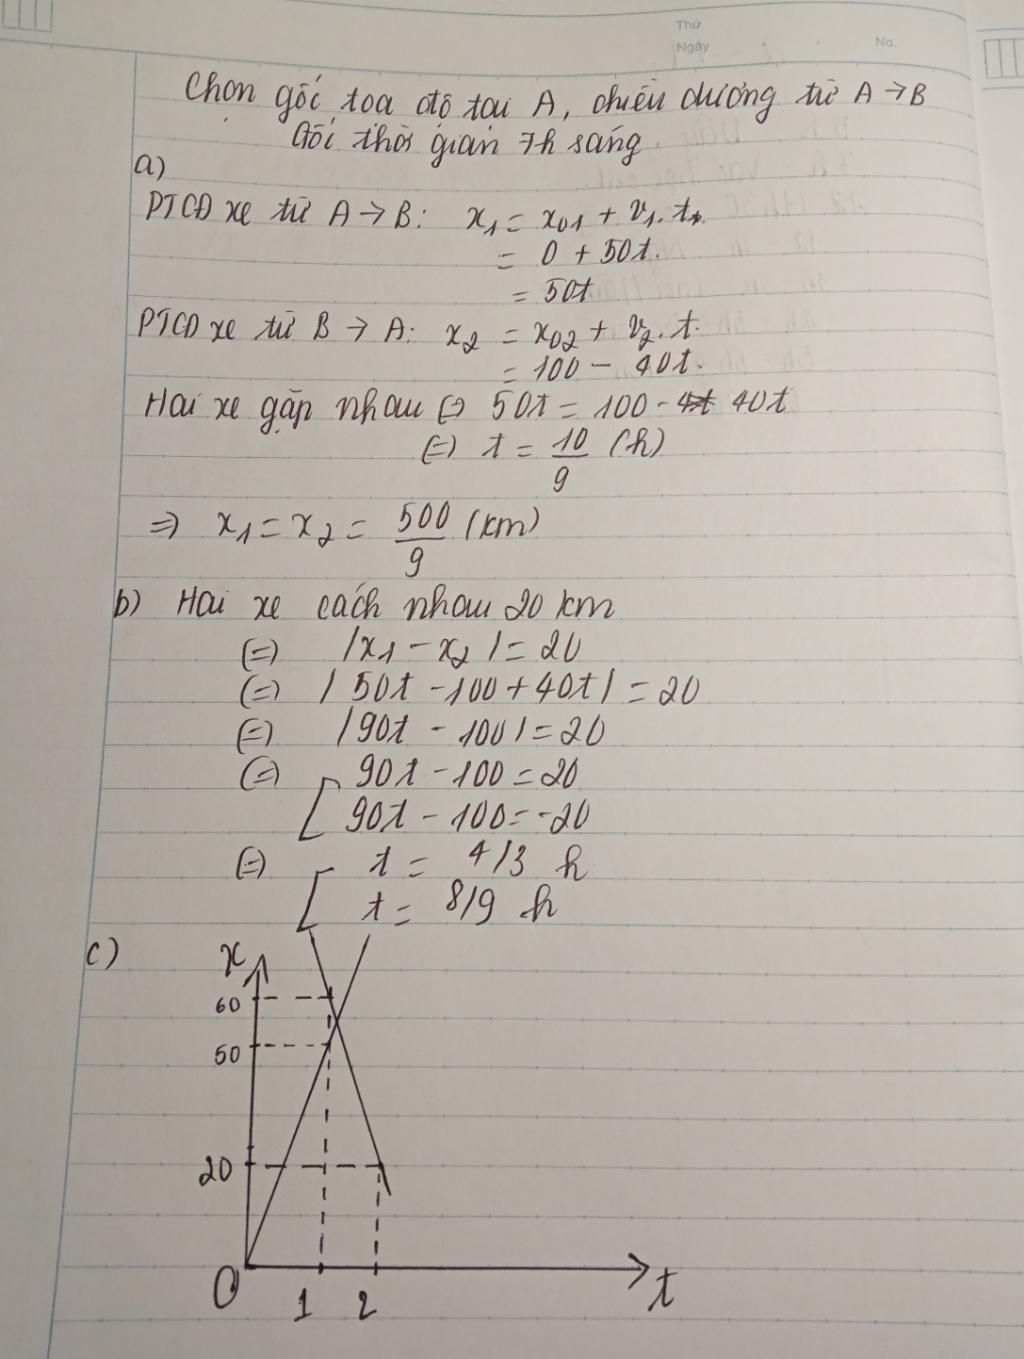 Thứ
Ngày
No.
Chọn gốc tọa độ tại A, chiều dương từ A → B
Gốc thời gian 7h sáng.
a)
PTCĐ xe từ A → B: x₁ = x₀₁ + v₁.t.
= 0 + 50t.
= 50t
PTCĐ xe từ B → A: x₂ = x₀₂ + v₂.t.
= 100 - 40t.
Hai xe gặp nhau (=) 50t = 100 - 40t
(=) t = 10/9 (h)
=> x₁ = x₂ = 500/9 (km)
b) Hai xe cách nhau 20 km
(=) |x₁ - x₂| = 20
(=) |50t - 100 + 40t| = 20
(=) |90t - 100| = 20
(=) [ 90t - 100 = 20
90t - 100 = -20
(=) [ t = 4/3 h
t = 8/9 h
c)
x
60
50
20
O 1 2 t